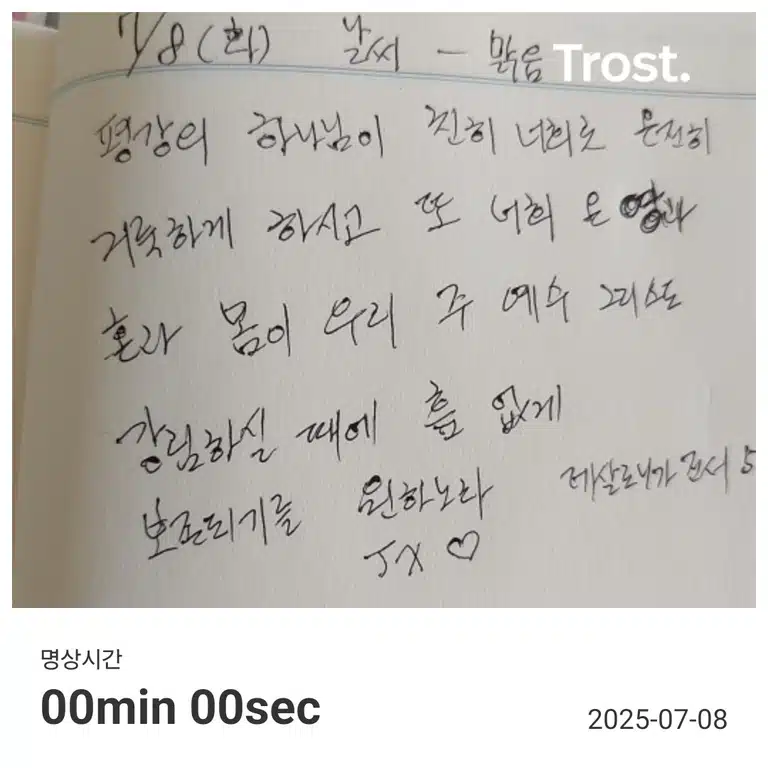 7/8 (화) 날씨 - 맑음
Trost.
평강의 하나님이 친히 너희로 온전히
거룩하게 하시고 또 너희 온 영과
혼과 몸이 우리 주 예수 그리스도
강림하실 때에 흠 없게
보존되기를 원하노라 데살로니가 전서 5
JX ♡
명상시간
00min 00sec
2025-07-08